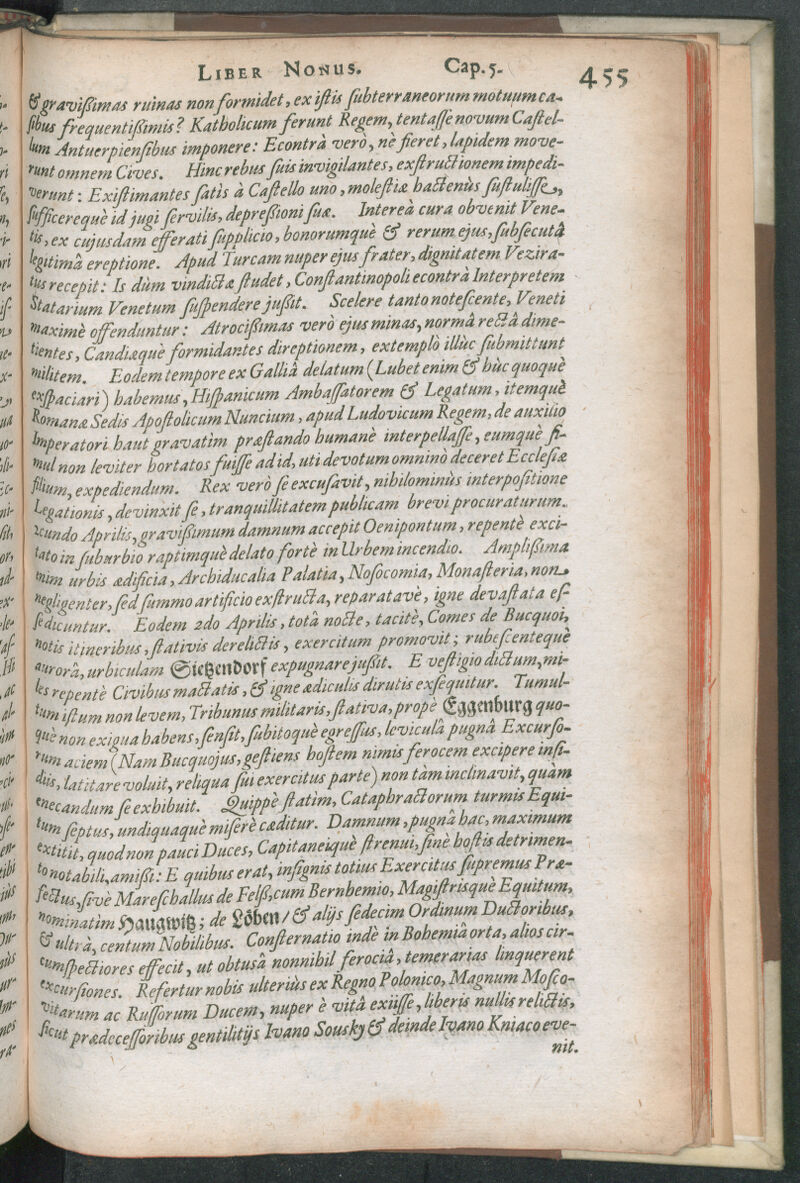 LIBER NONUS. Cap. 5. 455
& gravißimas ruinas non formidet, ex iſtis ſubterraneorum motuum ca-
ſibus frequentißimis? Katholicum ferunt Regem, tentaſſe novum Caſtel-
lum Antuerpienſibus imponere: Econtrà verò, nè fieret, lapidem move-
runt omnem Cives. Hinc rebus ſuis invigilantes, exſtructionem impedi-
verunt: Exiſtimantes ſatìs à Caſtello uno, moleſtiæ hactenùs ſuſtuliſſe,
ſufficerequè id jugi ſervilis, depreßioni ſuæ. Intereà cura obvenit Vene-
tis, ex cujusdam efferati ſupplicio, bonorumquè & rerum ejus, ſubſecutâ
legitimâ ereptione. Apud Turcam nuper ejus frater, dignitatem Vezira-
tus recepit: Is dùm vindictæ ſtudet, Conſtantinopoli econtrà Interpretem
Statarium Venetum ſuſpendere jußit. Scelere tanto noteſcente, Veneti
maximè offenduntur: Atrocißimas verò ejus minas, normâ rectâ dime-
tientes, Candiæquè formidantes direptionem, extemplò illùc ſubmittunt
militem. Eodem tempore ex Galliâ delatum (Lubet enim & hùc quoquè
exſpaciari) habemus, Hiſpanicum Ambaſſatorem & Legatum, itemquè
Romanæ Sedis Apoſtolicum Nuncium, apud Ludovicum Regem, de auxilio
Imperatori haut gravatìm præſtando humanè interpellaſſe, eumquè ſi-
mul non leviter hortatos fuiſſe ad id, uti devotum omninò deceret Eccleſiæ
filium, expediendum. Rex verò ſe excuſavit, nihilominùs interpoſitione
Legationis, devinxit ſe, tranquillitatem publicam brevi procuraturum.
2cundo Aprilis, gravißimum damnum accepit Oenipontum, repentè exci-
tato in ſuburbio raptimquè delato fortè in Urbem incendio. Amplißima
enim urbis ædificia, Archiducalia Palatia, Noſocomia, Monaſteria, non
negligenter, ſed ſummo artificio exſtructa, reparatavè, igne devaſtata eſ-
ſe dicuntur. Eodem 2do Aprilis, totâ nocte, tacitè, Comes de Bucquoi,
notis itineribus, ſtativis derelictis, exercitum promovit; rubeſcentequè
aurorâ, urbiculam Sietzendorf expugnare jußit. E veſtigio dictum, mi-
les repentè Civibus mactatis, & igne ædiculis dirutis exſequitur. Tumul-
tum iſtum non levem, Tribunus militaris, ſtativa, propè Eggenburg quo-
què non exigua habens, ſenſit, ſubitoquè egreſſus, leviculâ pugnâ Excurſo-
rum aciem (Nam Bucquojus, geſtiens hoſtem nimis ferocem excipere inſi-
diis, latitare voluit, reliqua ſui exercitus parte) non tàm inclinavit, quàm
enecandum ſe exhibuit. Quippè ſtatìm, Cataphractorum turmis Equi-
tum ſeptus, undiquaquè miſerè cæditur. Damnum, pugnâ hac, maximum
extitit, quod non pauci Duces, Capitaneiquè ſtrenui, ſinè hoſtis detrimen-
to notabili, amißi: E quibus erat, inſignis totius Exercitus ſupremus Præ-
fectus, ſivè Mareſchallus de Felß, cum Bernhemio, Magiſtrisquè Equitum,
nominatìm Haugwitz; de Löben / & alijs ſedecim Ordinum Ductoribus,
& ultrà, centum Nobilibus. Conſternatio indè in Bohemiâ orta, alios cir-
cumſpectiores effecit, ut obtusâ nonnihil ferociâ, temerarias linquerent
excurſiones. Refertur nobis ulteriùs ex Regno Polonico, Magnum Moſco-
vitarum ac Ruſſorum Ducem, nuper è vitâ exiiſſe, liberis nullis relictis,
ſicut prædeceſſoribus gentilitijs Ivano Sousky & deinde Ivano Kniaco eve-
nit.